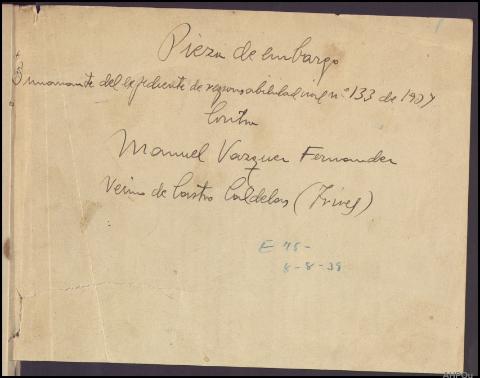 Pieza de embargo
Dimanante del expediente de responsabilidad civil nº 133 de 1937
Contra
Manuel Vazquez Fernandez
Vecino de Castro Caldelas (Trives)
E 45-
8-8-39
AHPOu